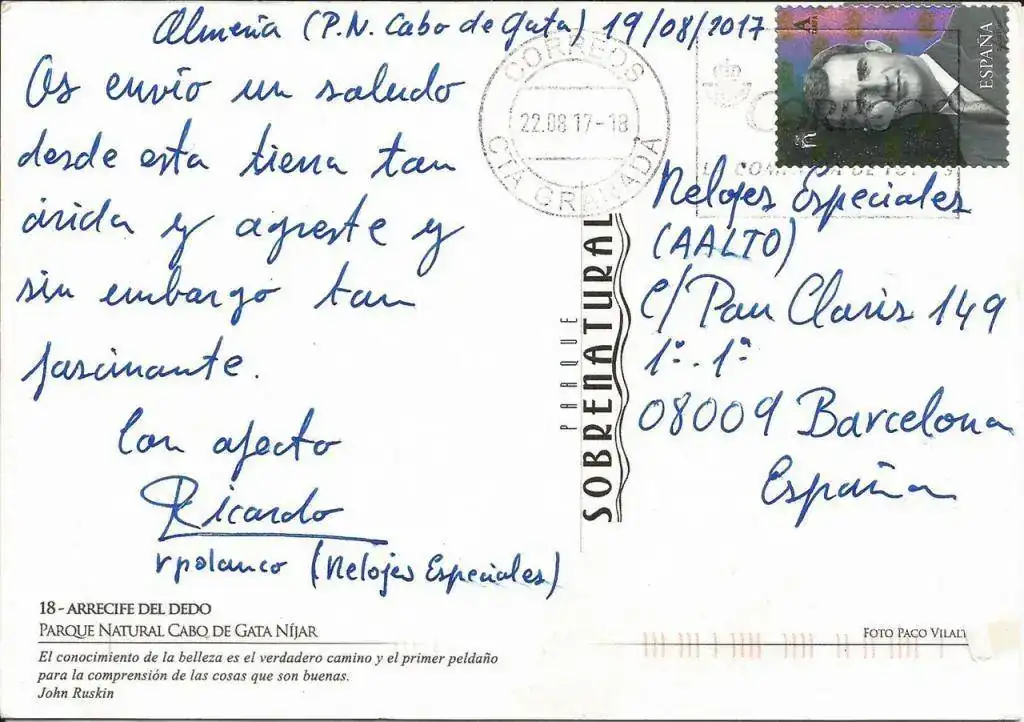 Almería (P.N. Cabo de Gata) 19/08/2017
Os envío un saludo
desde esta tierra tan
árida y agreste y
sin embargo tan
fascinante.
Con afecto
Ricardo
rpolanco (Relojes Especiales)
18 - ARRECIFE DEL DEDO
PARQUE NATURAL CABO DE GATA NÍJAR
El conocimiento de la belleza es el verdadero camino y el primer peldaño
para la comprensión de las cosas que son buenas.
John Ruskin
PARQUE
SOBRENATURAL
CORREOS
22.08 17-18
CTA GRANADA
CORREOS
A
TARIFA
ESPAÑA
Relojes Especiales
(AALTO)
C/ Pau Claris 149
1º. 1ª
08009 Barcelona
España
FOTO PACO VILALT